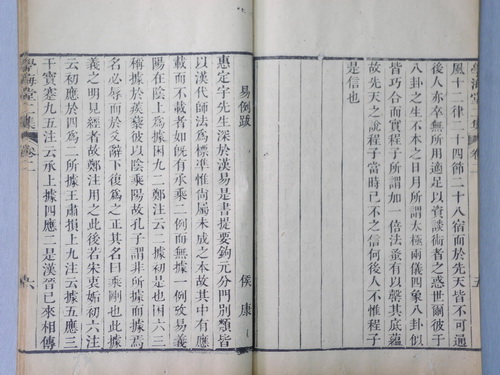 學海堂二集 卷二 五
風十二律二十四節二十八宿而於先天皆不可通
後人亦卒無所用適足以資談術者之惑世爾彼于
八卦之生不本之日月所謂太極兩儀四象八卦似
皆巧合而實程子所謂加一倍法蚤有以罄其底蘊
故先天之說程子當時已不之信何後人不惟程子
是信也
易例跋 侯康
惠定宇先生深於漢易是書提要鉤元分門別類皆
以漢代師法爲標準惟尚屬未成之本故其中有應
載而不載者如既有承乘二例而無據一例攷易義
陽在陰上爲據困九二鄭注云二據初是也困六三
稱據於蒺藜彼以陰乘陽故孔子謂非所據而據焉
名必辱而於爻辭下復爲之正其名曰乘剛也此據
義之明見經者故鄭注用之此後若朱衷姤初六注
云初應於四爲二所據王肅損上九注云據五應三
干寶蹇九五注云承上據四應二是漢晉已來相傳
學海堂二集 卷二 六